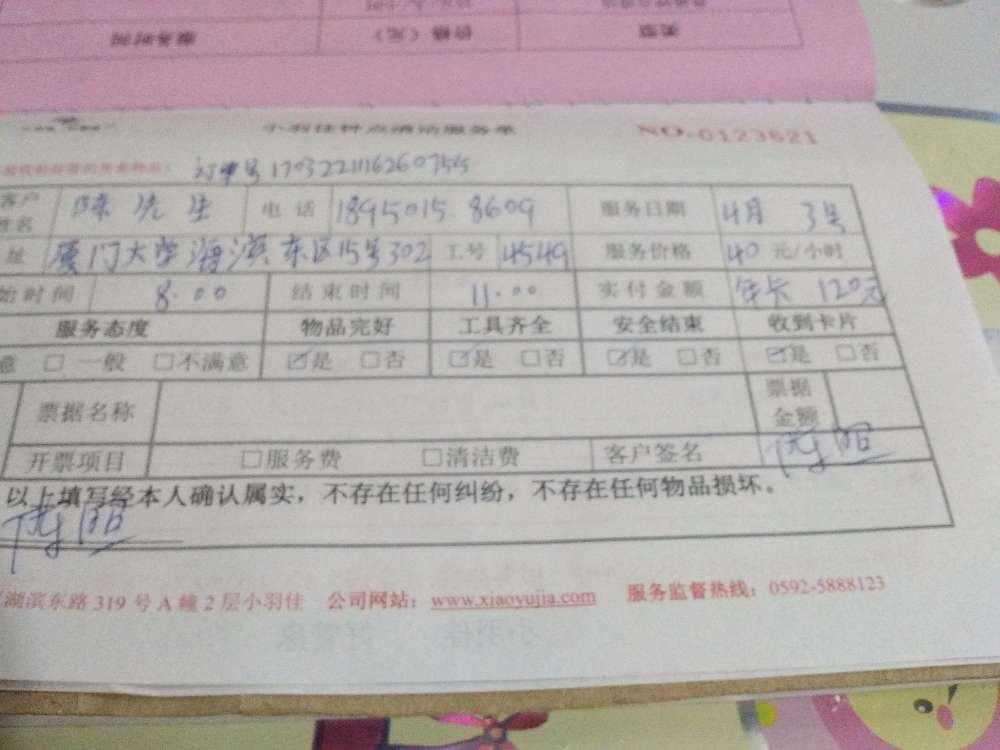 服务时间 价格（元） 类型
小羽佳钟点清洁服务单 NO.0123621
订单号
客户姓名 陈先生 电话 18950158609 服务日期 4月3号
址 厦门大学海滨东区15号302 工号 4549 服务价格 40 元/小时
始时间 8:00 结束时间 11:00 实付金额 年卡 120元
服务态度 物品完好 工具齐全 安全结束 收到卡片
意 □ 一般 □不满意 ☑是 □否 ☑是 □否 ☑是 □否 ☑是 □否
票据名称 票据金额
开票项目 □服务费 □清洁费 客户签名
以上填写经本人确认属实，不存在任何纠纷，不存在任何物品损坏。
湖滨东路 319 号 A 幢 2 层小羽佳 公司网站：www.xiaoyujia.com 服务监督热线：0592-5888123